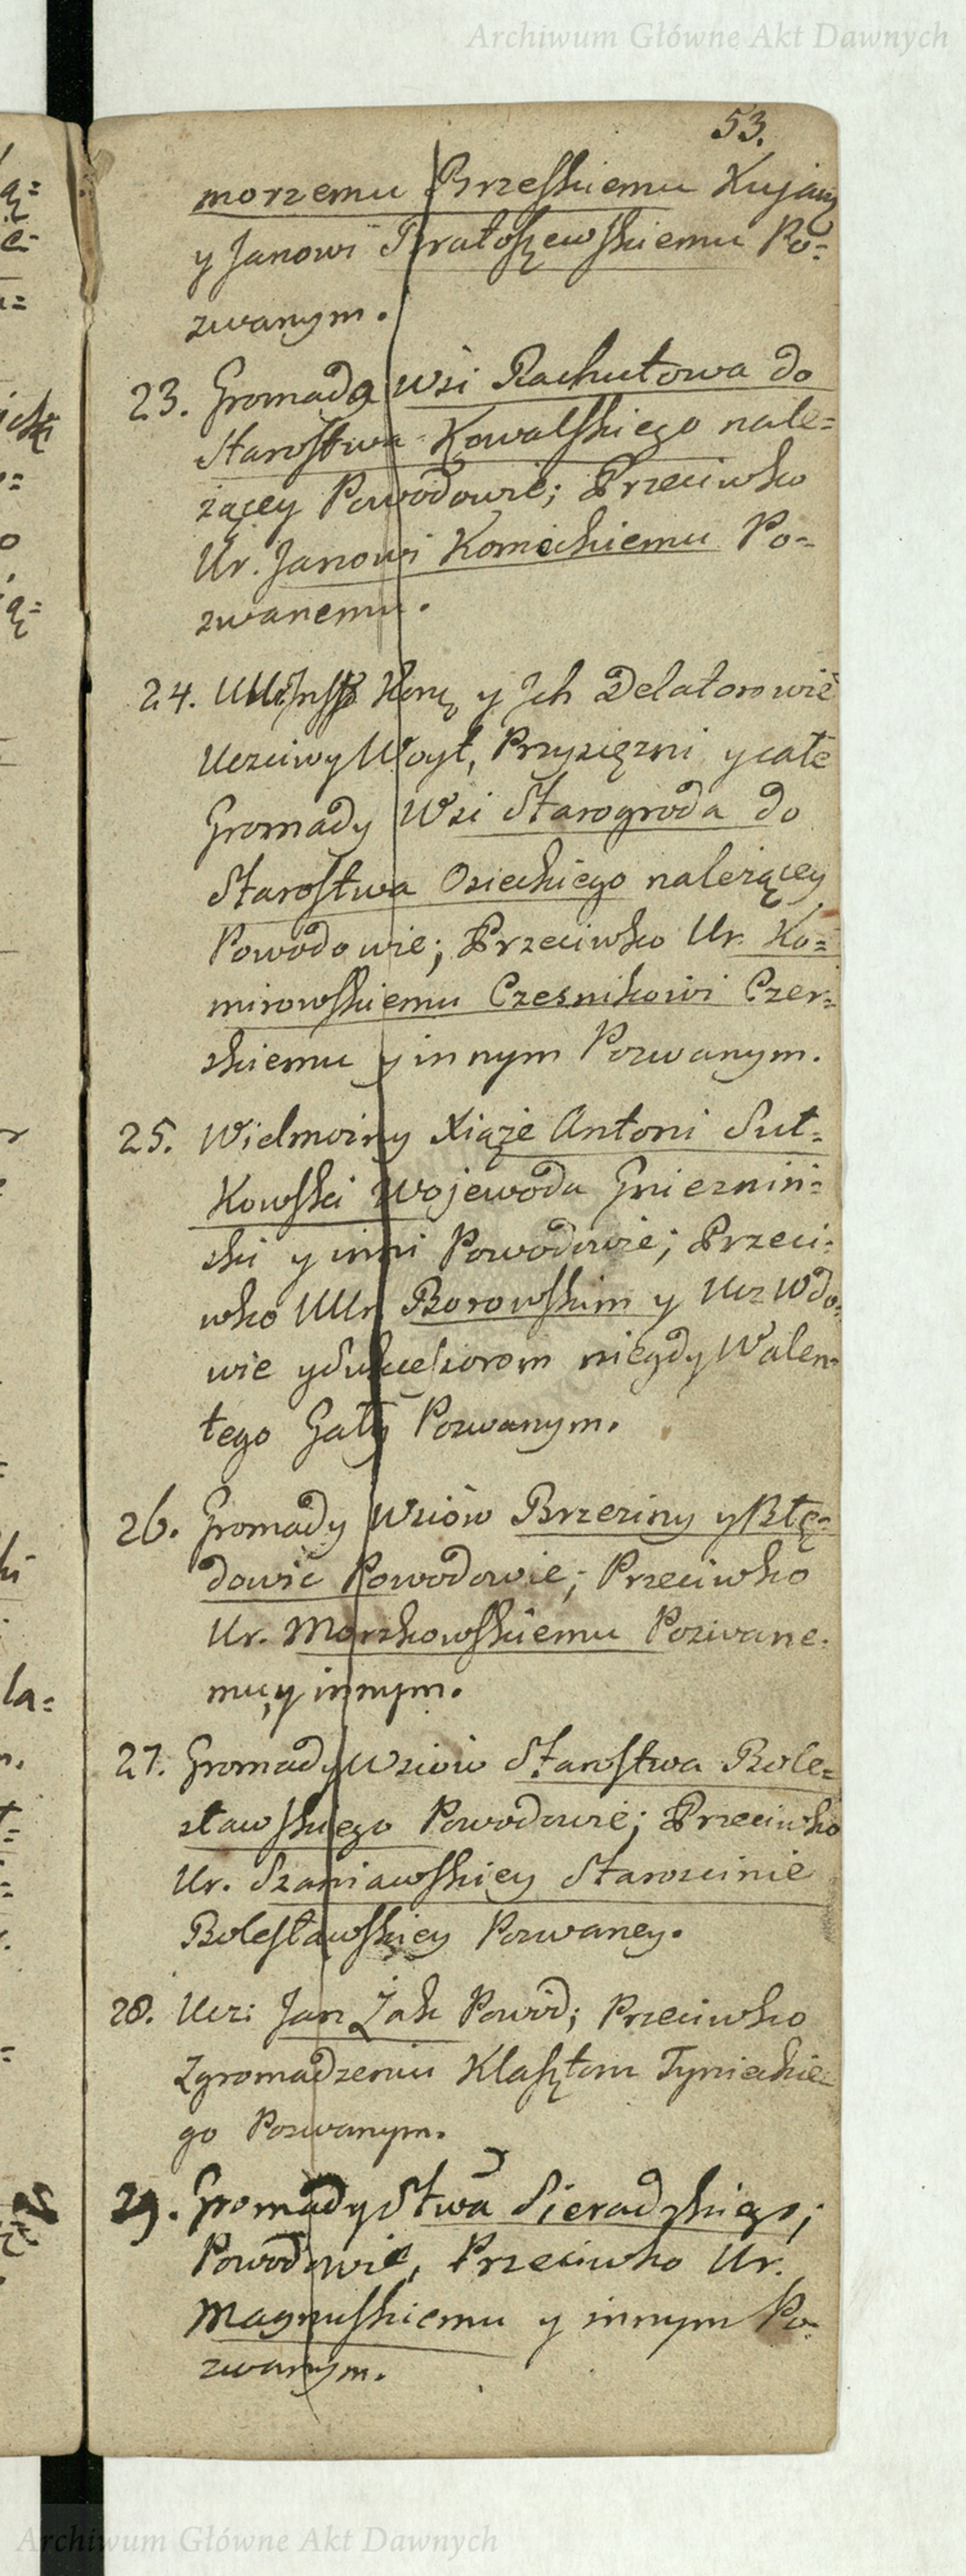 Archiwum Główne Akt Dawnych
53.
morzemu Brzeskiemu Kujaw
y Janowi Bratoszewskiemu Po=
zwanym.
23. Gromada Wsi Rachutowa do
Starostwa Kowalskiego nale=
żącey Powodowie; Przeciwko
Ur. Janowi Komeckiemu Po=
zwanemu.
24. Kor. y Jch Delatorowie
Uczciwy Woyt, Przysiężni y całe
Gromady Wsi Starogroda do
Starostwa Osieckiego należącey
Powodowie; Przeciwko Ur. Ko=
mirowskiemu Czesnikowi Czer=
skiemu y innym Pozwanym.
25. Wielmożny Xiąże Antoni Suł=
kowski Wojewoda Gnieznin=
ski y inni Powodowie; Przeci=
wko UUr. Borowskim y Ucz Wdo=
wie y Sukcessorom niegdy Walen=
tego Gały Pozwanym.
26. Gromady Wsiów Brzeziny y Błę=
dowic Powodowie; Przeciwko
Ur. Morzkowskiemu Pozwane=
mu, y innym.
27. Gromady Wsiów Starostwa Bole=
sławskiego Powodowie; Przeciwko
Ur. Szaniawskiey Starościnie
Bolesławskiey Pozwaney.
28. Ucz: Jan Żak Powód; Przeciwko
Zgromadzeniu Klasztoru Tynieckie=
go Pozwanym.
29. Gromady Stwa Sieradzkiego;
Powodowie, Przeciwko Ur.
Magnuskiemu y innym Po=
zwanym.
Archiwum Główne Akt Dawnych